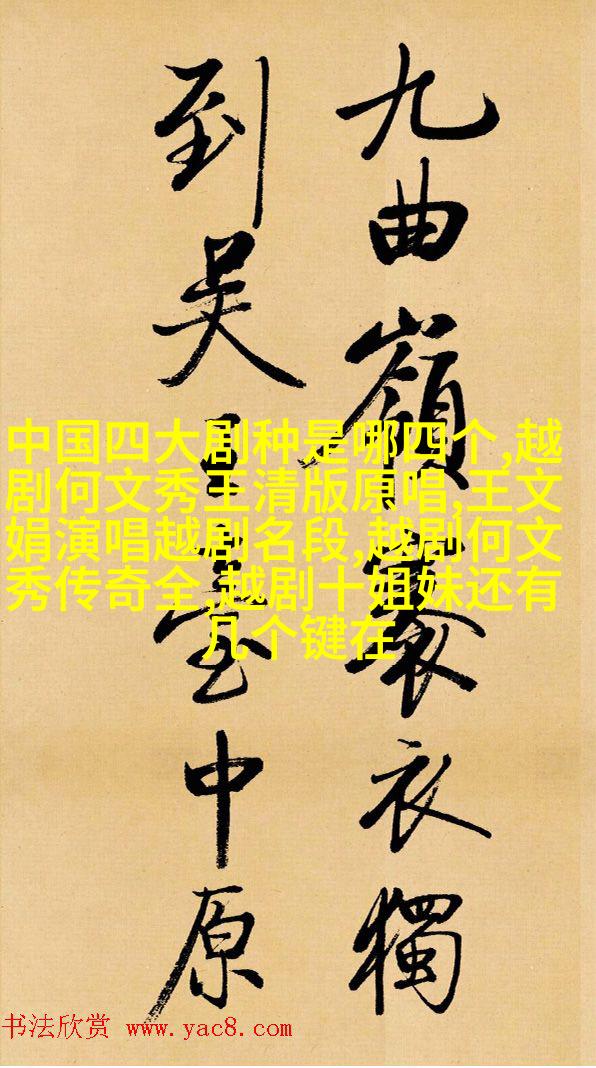 九曲嶺褰衣獨
到吳王臺中原
中国四大剧种是哪四个,越
剧何文秀王清版原唱,王文
娟演唱越剧名段,越剧何文
秀传奇全,越剧十姐妹还有
几个键在
书法欣赏 www.yac8.com